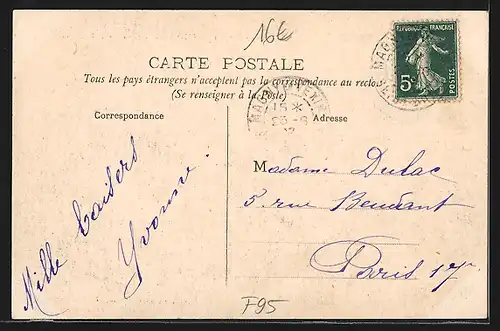 16€
CARTE POSTALE
Tous les pays étrangers n'acceptent pas la correspondance au recto
(Se renseigner à la Poste)
RÉPUBLIQUE FRANÇAISE
5c
POSTES
15 *
Correspondance
Adresse
Mille baisers
Yvonne
Madame Dulac
5, rue Beudant
Paris 17e
F95